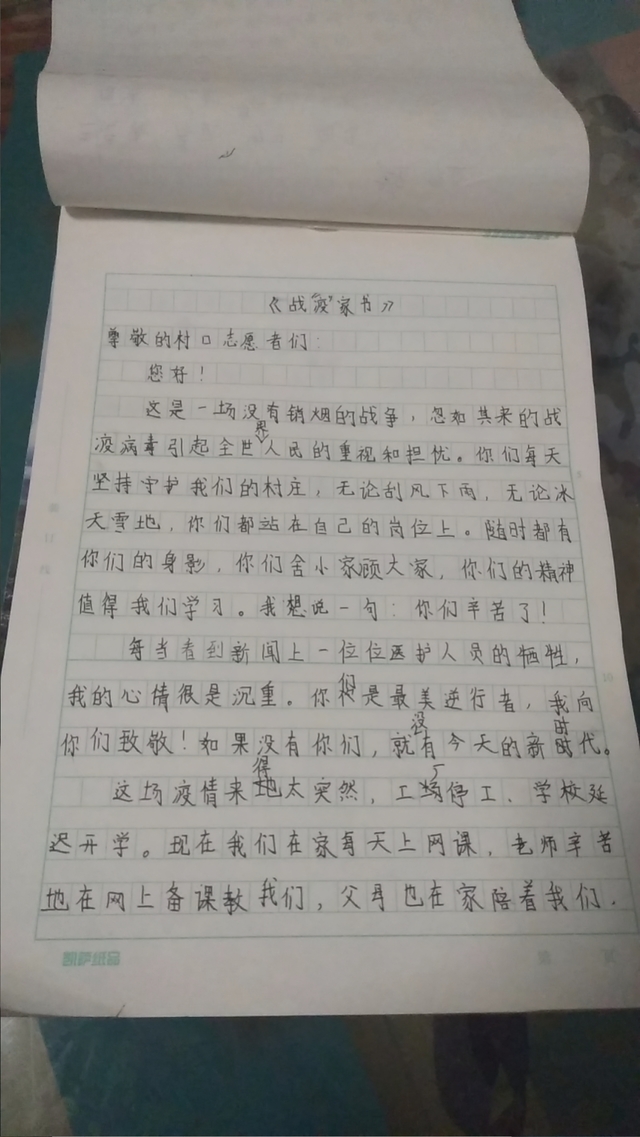 《战“疫”家书》
尊敬的村口志愿者们：
您好！
这是一场没有销烟的战争，忽如其来的战
疫病毒引起全世界人民的重视和担忧。你们每天
坚持守护我们的村庄，无论刮风下雨，无论冰
天雪地，你们都站在自己的岗位上。随时都有
你们的身影，你们舍小家顾大家，你们的精神
值得我们学习。我想说一句：你们辛苦了！
每当看到新闻上一位位医护人员的牺牲，
我的心情很是沉重。你们是最美逆行者，我向
你们致敬！如果没有你们，就没有今天的新时代。
这场疫情来得太突然，工厂停工、学校延
迟开学。现在我们在家每天上网课，老师辛苦
地在网上备课教我们，父母也在家陪着我们．
凯萨纸品
第 页